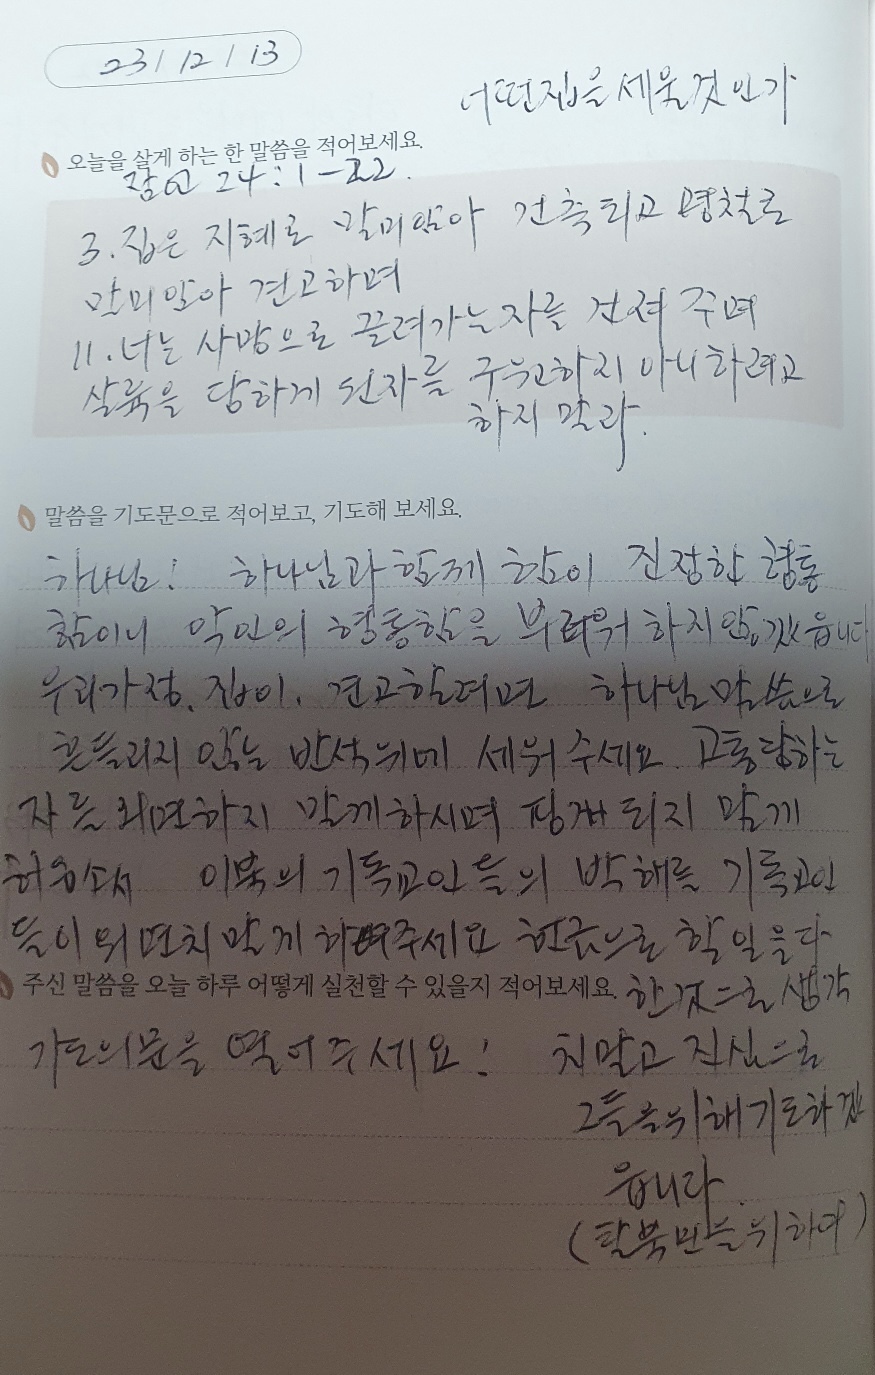 23/12/13
어떤집을 세울것인가
오늘을 살게 하는 한 말씀을 적어보세요.
잠언 24:1-22.
3. 집은 지혜로 말미암아 건축되고 명철로
말미암아 견고하며
11. 너는 사망으로 끌려가는자를 건져 주며
살륙을 당하게 된자를 구원하지 아니하려고
하지 말라.
말씀을 기도문으로 적어보고, 기도해 보세요.
하나님! 하나님과 함께 함이 진정한 형통
함이니 악인의 형통함을 부러워 하지않겠읍니다
우리가정, 집이. 견고할려면 하나님말씀으로
흔들리지 않는 반석위에 세워주세요. 고통당하는
자를 외면하지 말게하시며 핑계되지 말게
하옵소서 이북의 기독교인들의 박해를 기독교인
들이 외면치말게 하여주세요 헌금으로 할일을다
주신 말씀을 오늘 하루 어떻게 실천할 수 있을지 적어보세요.
한것으로 생각
기도의문을 열어주세요! 치말고 진심으로
그들을위해기도하겠
읍니다.
(탈북민을위하여)